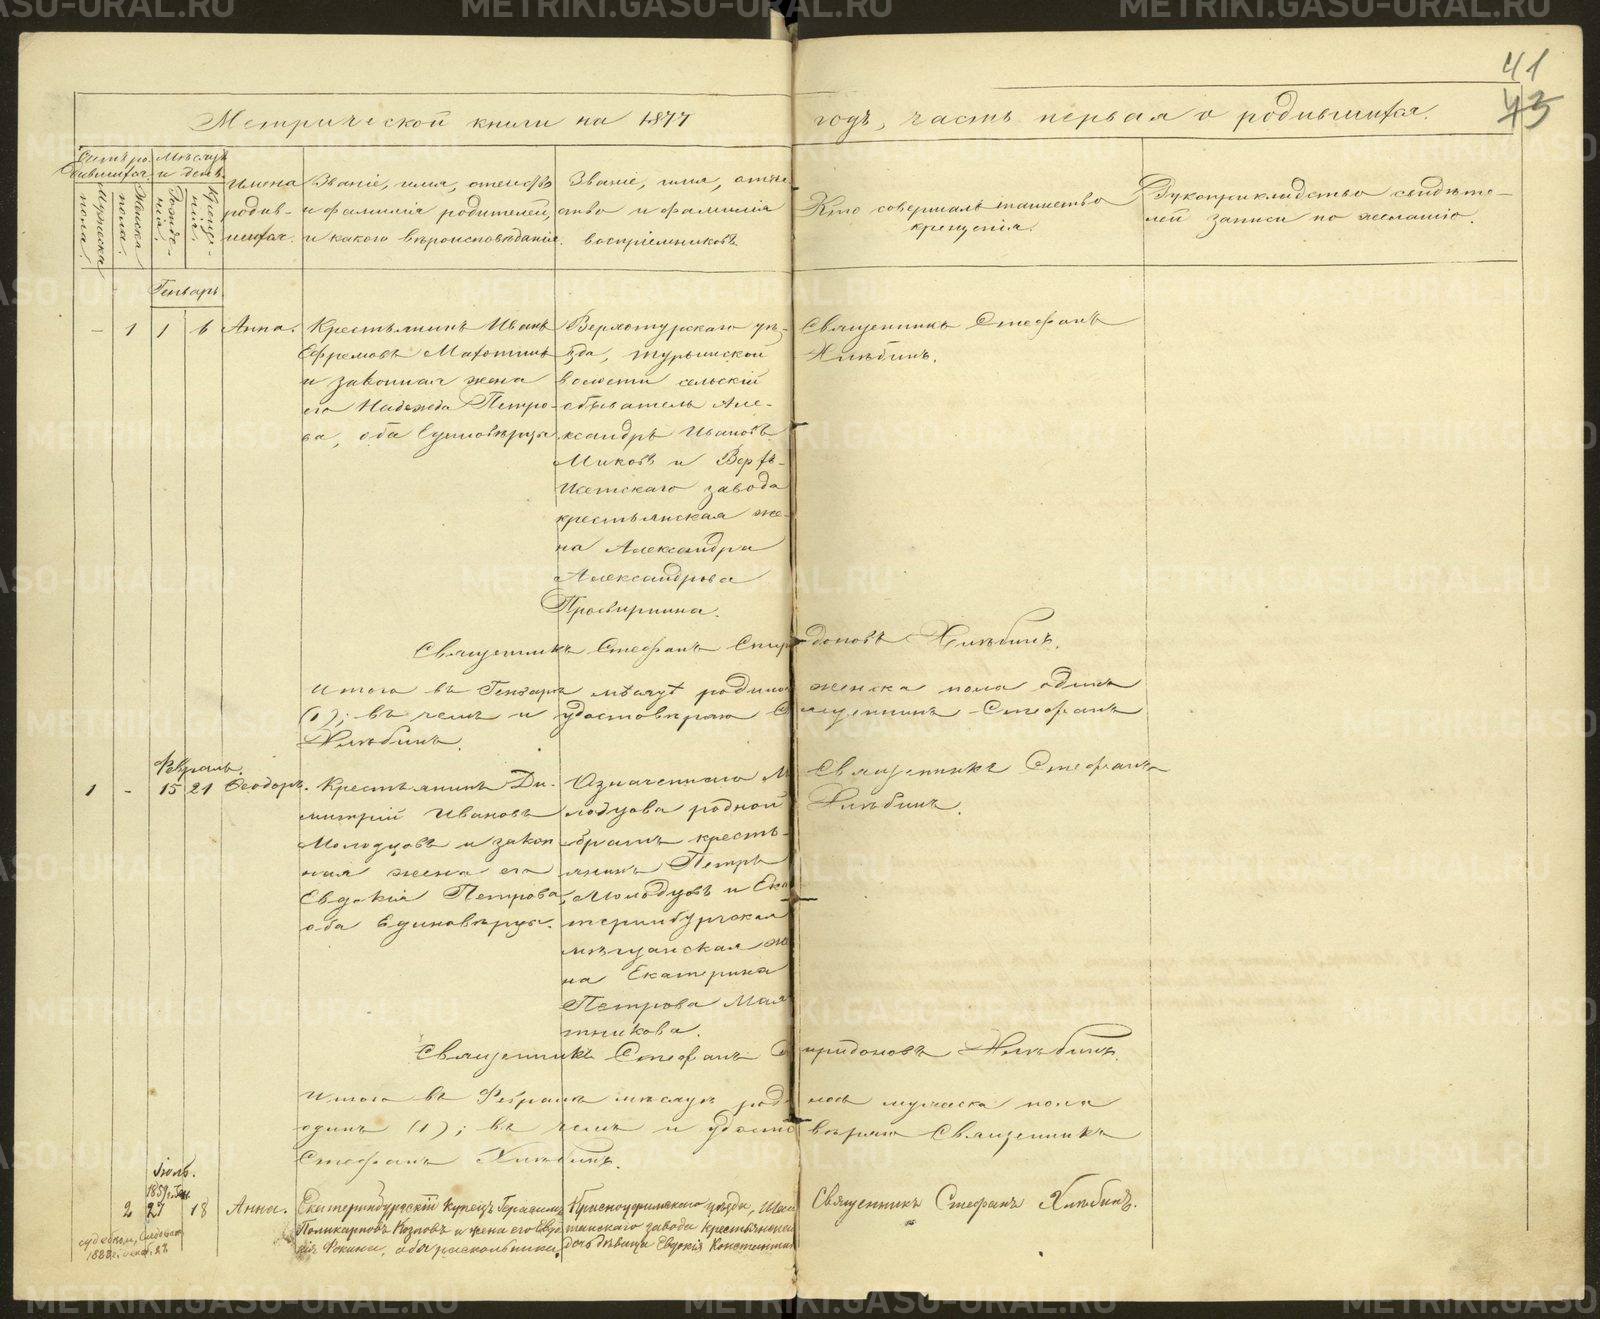 41
43
Метрической книги на 1877 годъ, часть первая о родившихся.
Счетъ ро-
дившихся.
Мужеска
пола.
Женска
пола.
Мѣсяцъ
и день.
Рожде-
нія.
Креще-
нія.
Имена
родив-
шихся.
Званіе, имя, отечество
и фамилія родителей,
и какого вѣроисповѣданія.
Званіе, имя, отче-
ство и фамилія
воспріемниковъ.
Кто совершалъ таинство
крещенія.
Рукоприкладство свидѣте-
лей записи по желанію.
Генварь.
- 1 1 6 Анна.
Крестьянинъ Иванъ
Ефремовъ
и законная жена
его Надежда Петро-
ва, оба Единовѣрцы
Верхотурскаго уѣз-
да, Турьинской
волости сельскій
обыватель Але-
ксандръ Ивановъ
Миковъ и Верхъ-
Исетскаго завода
крестьянская же-
на Александра
Александрова
Просвирнина.
Священникъ Стефанъ
Хлѣбинъ.
Священникъ Стефанъ Спиридоновъ Хлѣбинъ.
Итого въ Генварѣ мѣсяцѣ родилось женска пола одинъ
(1); въ чемъ и удостовѣряю Священникъ Стефанъ
Хлѣбинъ.
Февраль.
1 - 15 21 Ѳеодоръ.
Крестьянинъ Ди-
митрій Ивановъ
Молодцовъ и закон
ная жена его
Евдокія Петрова
оба Единовѣрцы.
Означеннаго Мо
лодцова родной
братъ кресть-
янинъ Петръ
Молодцовъ и Ека
теринбургская
мѣщанская же
на Екатерина
Петрова
Священникъ Стефанъ
Хлѣбинъ.
Священникъ Стефанъ Спиридоновъ Хлѣбинъ.
Итого въ Февралѣ мѣсяцѣ родилось мужеска пола
одинъ (1); въ чемъ и удостовѣряю Священникъ
Стефанъ Хлѣбинъ.
Іюль.
1859 г.
2 27 18 Анна.
Екатеринбургскій Купецъ Герасимъ
Поликарповъ Козловъ и жена его Евдо
кія Фокина, оба раскольники.
Красноуфимскаго уѣзда,
завода Крестьянская
дочь дѣвица Евдокія Константин
Священникъ Стефанъ Хлѣбинъ.